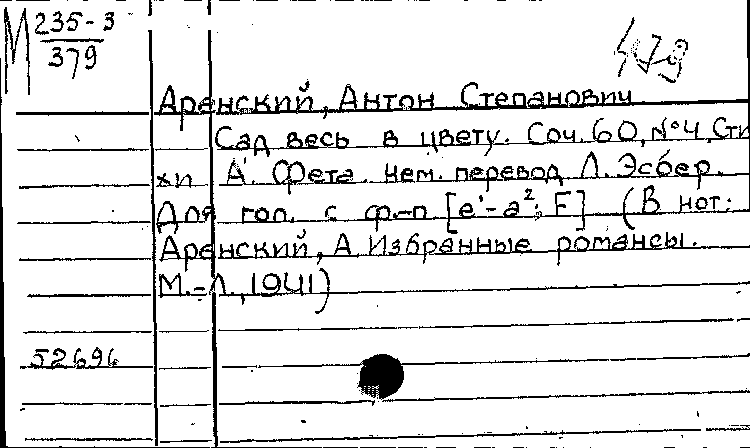 М 235-3
379
479
Аренский, Антон Степанович
Сад весь в цвету. Соч. 60, №4. Сти
хи А. Фета. Нем. перевод Л. Эсбер.
Для гол. с ф.-п. [e¹-a²; F] (В нот:
Аренский, А. Избранные романсы.
М.-Л., 1941)
52696